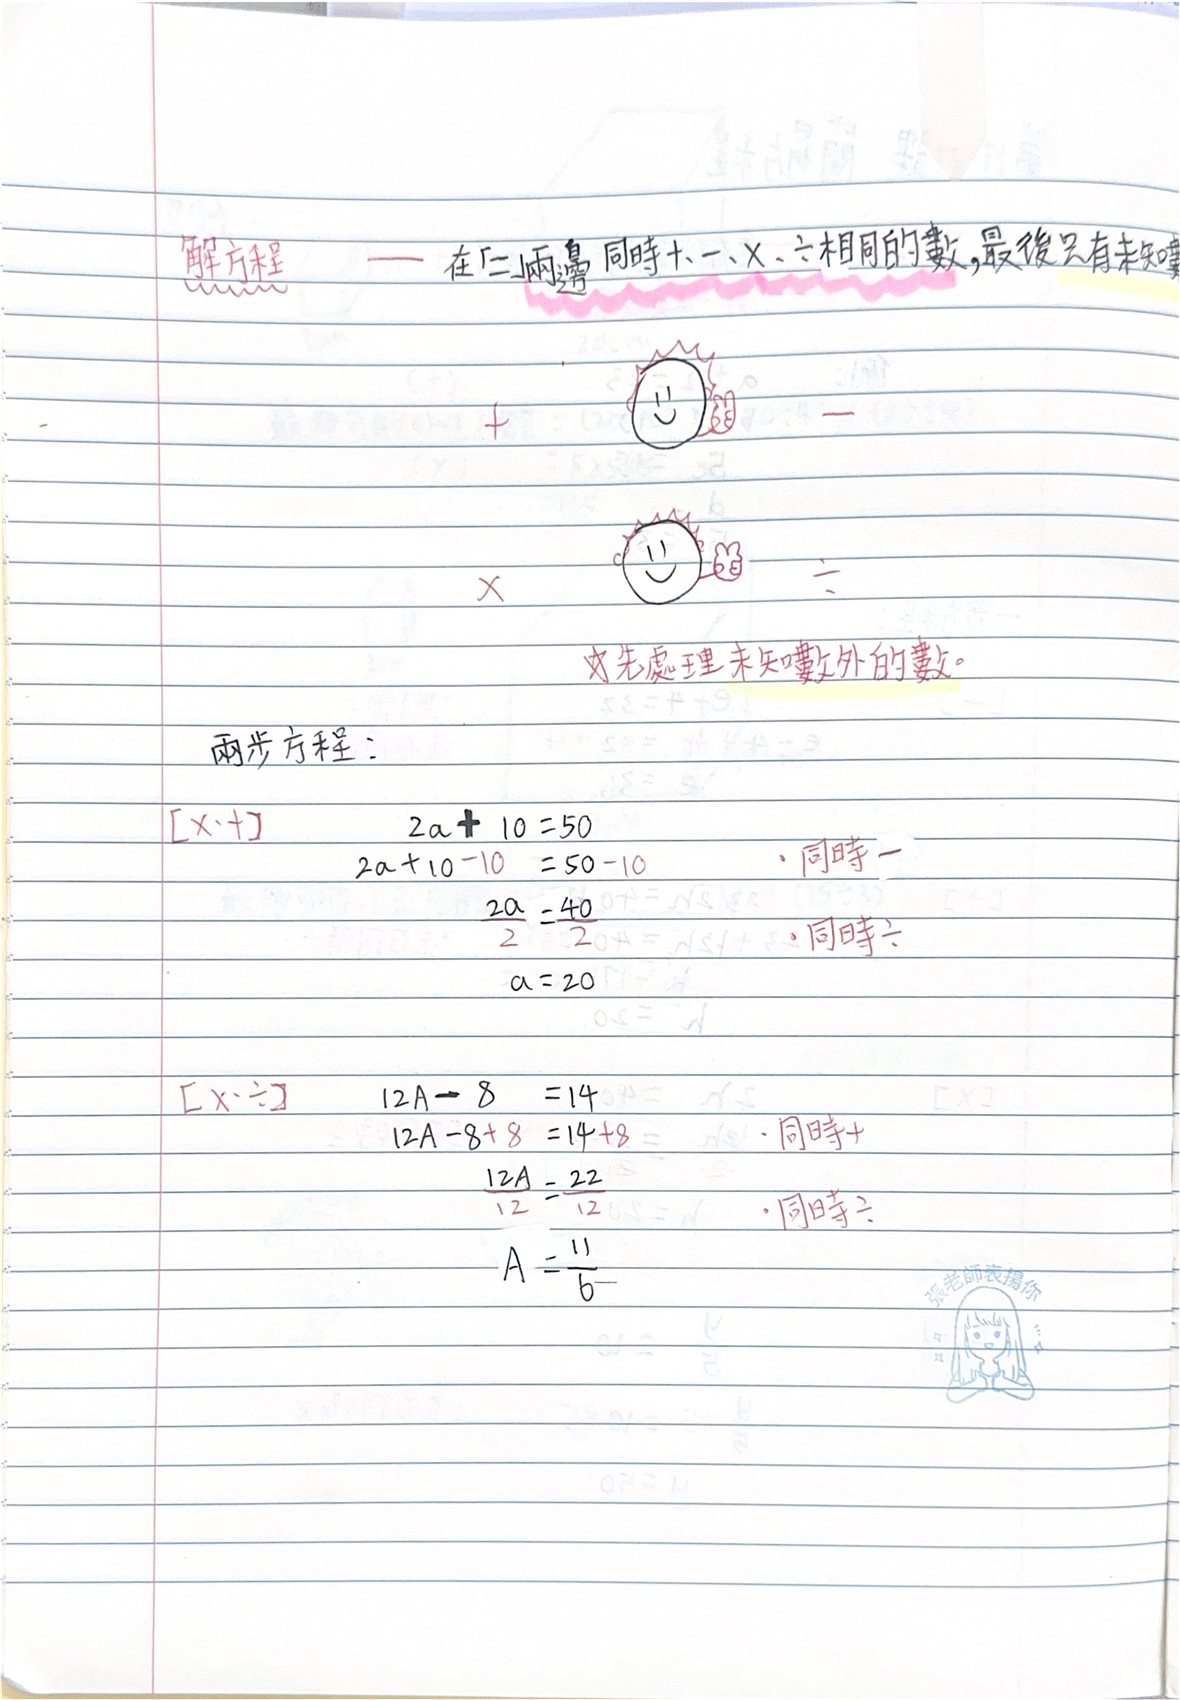 解方程 — 在「=」兩邊同時+、-、×、÷相同的數,最後只有未知數
+ -
× ÷
☆先處理未知數外的數。
兩步方程:
[×·+] 2a + 10 = 50
2a + 10 - 10 = 50 - 10 ·同時-
2a/2 = 40/2 ·同時÷
a = 20
[×·÷] 12A - 8 = 14
12A - 8 + 8 = 14 + 8 ·同時+
12A/12 = 22/12 ·同時÷
A = 11/6
張老師表揚你